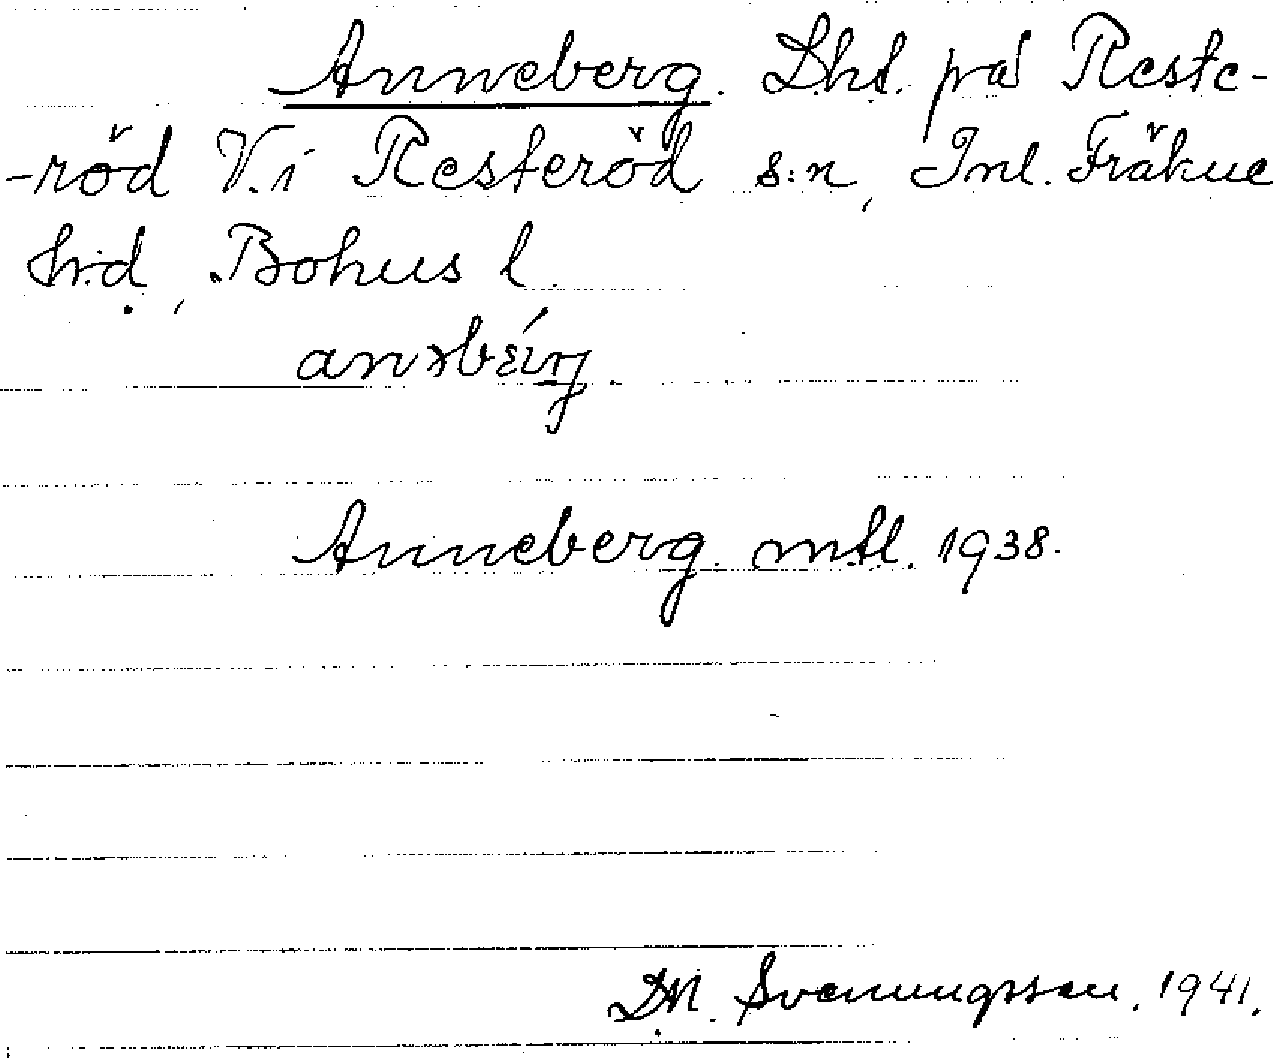 Anneberg. Lht. på Reste-
-röd V. i Resteröd s:n, Inl. Fräkne
hrd, Bohus l.
Anneberg. mtl. 1938.
D.M. Svenungsson. 1941.